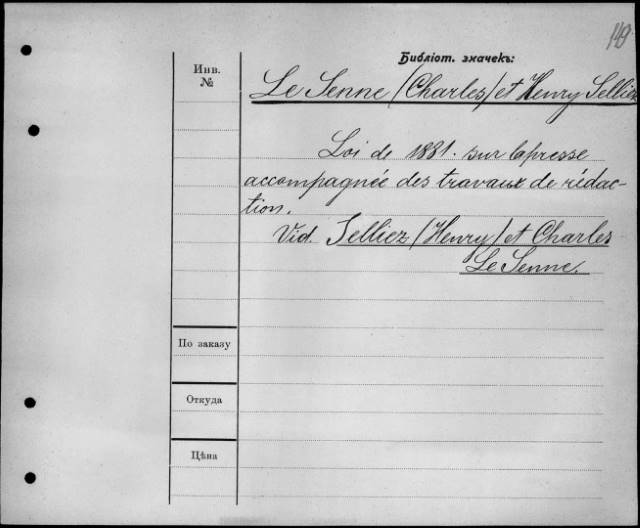 149
Библіот. значекъ:
Инв.
№
Le Senne (Charles) et Henry Selliez
Loi de 1881. sur la presse
accompagnée des travaux de rédac-
tion.
Vid. Selliez (Henry) et Charles
Le Senne.
По заказу
Откуда
Цѣна